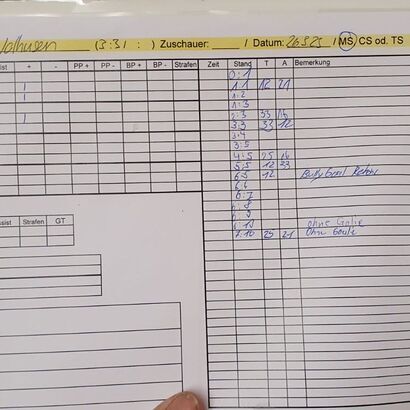 (3:31 : ) Zuschauer: / Datum: 26.3.25 / MS / CS od. TS
ist + - PP + PP - BP + BP - Strafen Zeit Stand T A Bemerkung
0:1
1:1 12 21
1:2
1:3
2:3 33 16
3:3 33 12
3:4
3:5
4:5 25 16
5:5 12 33
6:5 12 Bully Goal
6:6
6:7
:8
:9
:10 ohne Goalie
7:10 25 21 Ohne Goalie
ssist Strafen GT